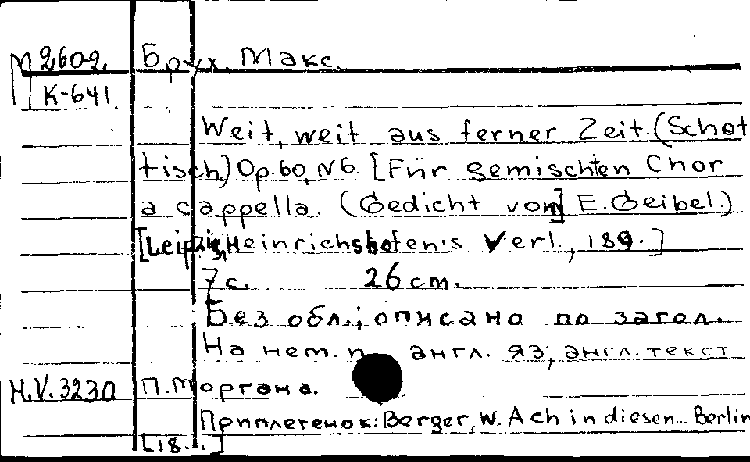 М 2602 Брух, Макс.
К-641
Weit, weit aus ferner Zeit. (Schot
tisch.) Op. 60, N6. [Für gemischten Chor
a cappella. (Gedicht von] E. Geibel.)
[Leipzig, Heinrichshofen's Verl., 189.]
7 с. 26 cm.
Без обл.; описано по загол.
На нем. и англ. яз; англ. текст
Н.V.3230 П. Моргана.
Приплетено к: Berger, W. Ach in diesen... Berlin
[18..]